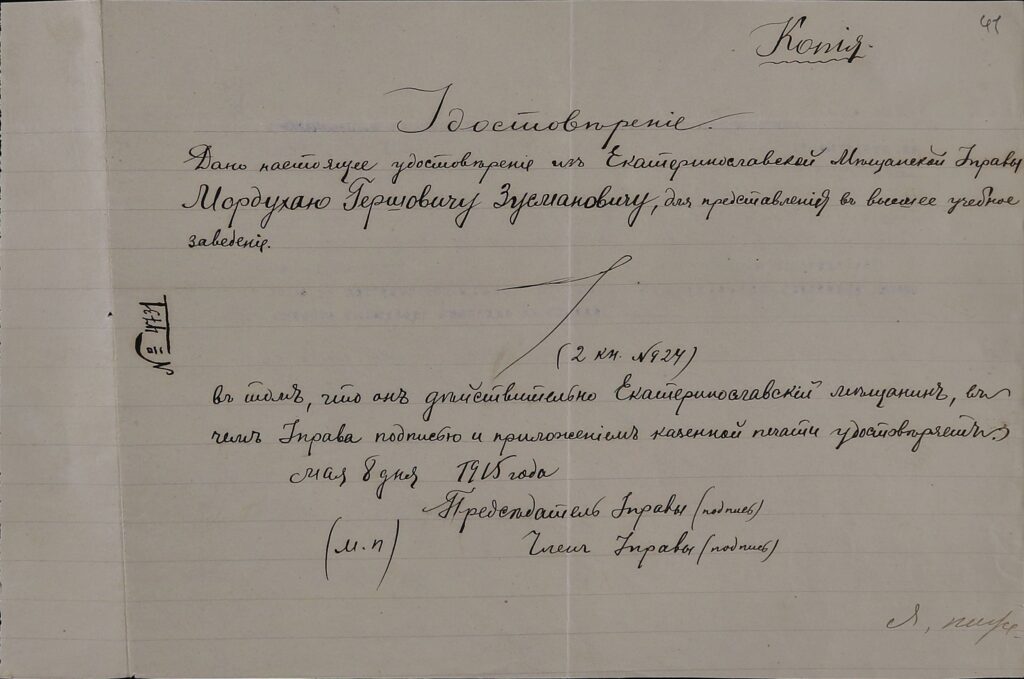 41
Копія.
Удостовѣреніе.
Дано настоящее удостовѣреніе изъ Екатеринославской Мѣщанской Управы
Мордухаю Гершовичу Зусмановичу, для представленія въ высшее учебное
заведеніе.
№ 4731
(2 кн. №924)
въ томъ, что онъ дѣйствительно Екатеринославскій мѣщанинъ, въ
чемъ Управа подписью и приложеніемъ казенной печати удостовѣряетъ.
мая 8 дня 1915 года
Предсѣдатель Управы (подпись)
(м.п)
Членъ Управы (подпись)
Я, ниже-